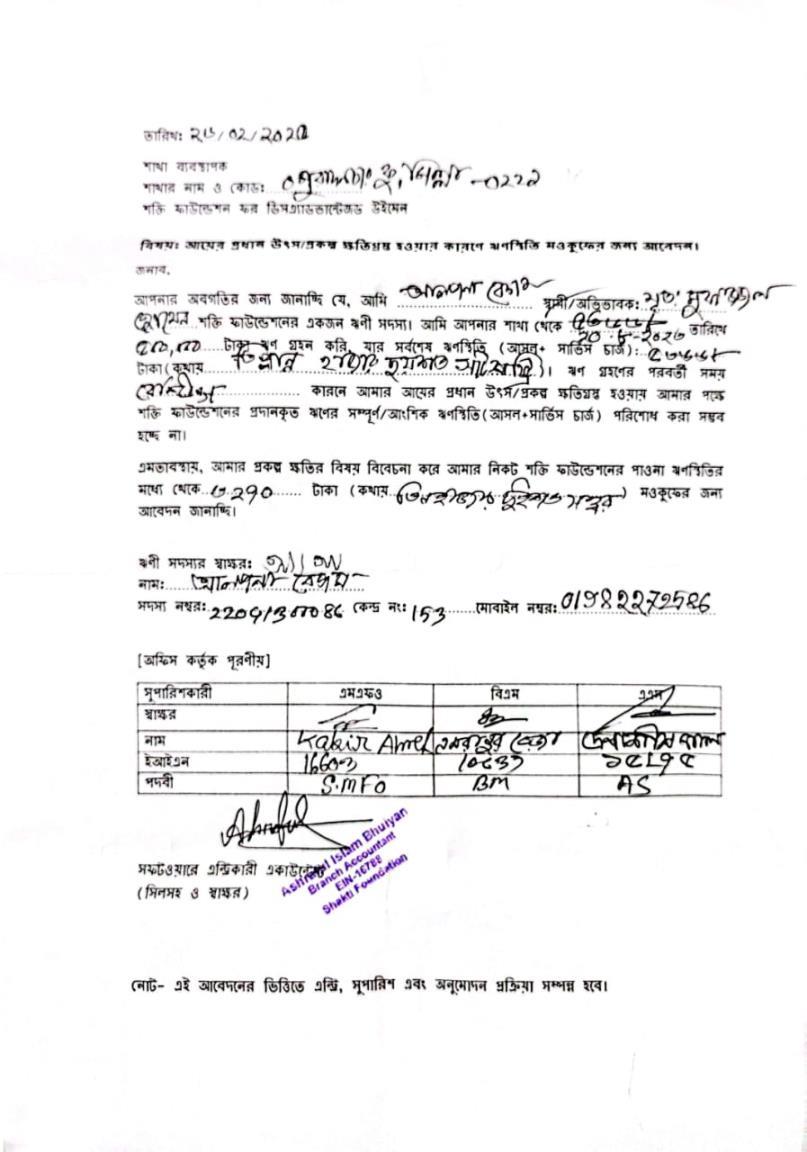 তারিখঃ ২৬/০২/২০২
শাখা ব্যবস্থাপক
শাখার নাম ও কোডঃ -০২২৯
শক্তি ফাউন্ডেশন ফর ডিসএ্যাডভান্টেজড উইমেন
বিষয়ঃ আয়ের প্রধান উৎস/প্রকল্প ক্ষতিগ্রস্থ হওয়ার কারণে ঋণস্থিতি মওকুফের জন্য আবেদন।
জনাব,
আপনার অবগতির জন্য জানাচ্ছি যে, আমি আলপনা বেগম স্বামী/অভিভাবকঃ মৃতঃ
হোসেন শক্তি ফাউন্ডেশনের একজন ঋণী সদস্য। আমি আপনার শাখা থেকে তারিখে
টাকা ঋণ গ্রহন করি, যার সর্বশেষ ঋণস্থিতি (আসল+ সার্ভিস চার্জ):
টাকা(কথায় হাজার ছয়শত )। ঋণ গ্রহণের পরবর্তী সময়
কারনে আমার আয়ের প্রধান উৎস/প্রকল্প ক্ষতিগ্রস্থ হওয়ায় আমার পক্ষে
শক্তি ফাউন্ডেশনের প্রদানকৃত ঋণের সম্পূর্ণ/আংশিক ঋণস্থিতি(আসল+সার্ভিস চার্জ) পরিশোধ করা সম্ভব
হচ্ছে না।
এমতাবস্থায়, আমার প্রকল্প ক্ষতির বিষয় বিবেচনা করে আমার নিকট শক্তি ফাউন্ডেশনের পাওনা ঋণস্থিতির
মধ্যে থেকে ৩২৭০ টাকা (কথায় তিনহাজার দুইশত সত্তুর) মওকুফের জন্য
আবেদন জানাচ্ছি।
ঋণী সদস্যর স্বাক্ষরঃ
নামঃ আলপনা বেগম
সদস্য নম্বরঃ কেন্দ্র নংঃ 153 মোবাইল নম্বরঃ 01982272586
[অফিস কর্তৃক পূরণীয়]
সুপারিশকারী এমএফও বিএম এএম
স্বাক্ষর
নাম Kabir Ahmed
ইআইএন
পদবী S.MFO BM AS
সফটওয়ারে এন্ট্রিকারী একাউন্টেন্ট
(সিলসহ ও স্বাক্ষর)
Ashraful Islam Bhuiyan
Branch Accountant
EIN-16788
Shakti Foundation
নোট- এই আবেদনের ভিত্তিতে এন্ট্রি, সুপারিশ এবং অনুমোদন প্রক্রিয়া সম্পন্ন হবে।